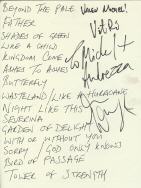 BEYOND THE PALE
FATHER
SHADES OF GREEN
LIKE A CHILD
KINGDOM COME
ASHES TO ASHES
BUTTERFLY
WASTELAND / LIKE A HURRICANE
NIGHT LIKE THIS
SEVERINA
GARDEN OF DELIGHT
WITH OR WITHOUT YOU
SORRY / GOD ONLY KNOWS
BIRD OF PASSAGE
TOWER OF STRENGTH
To